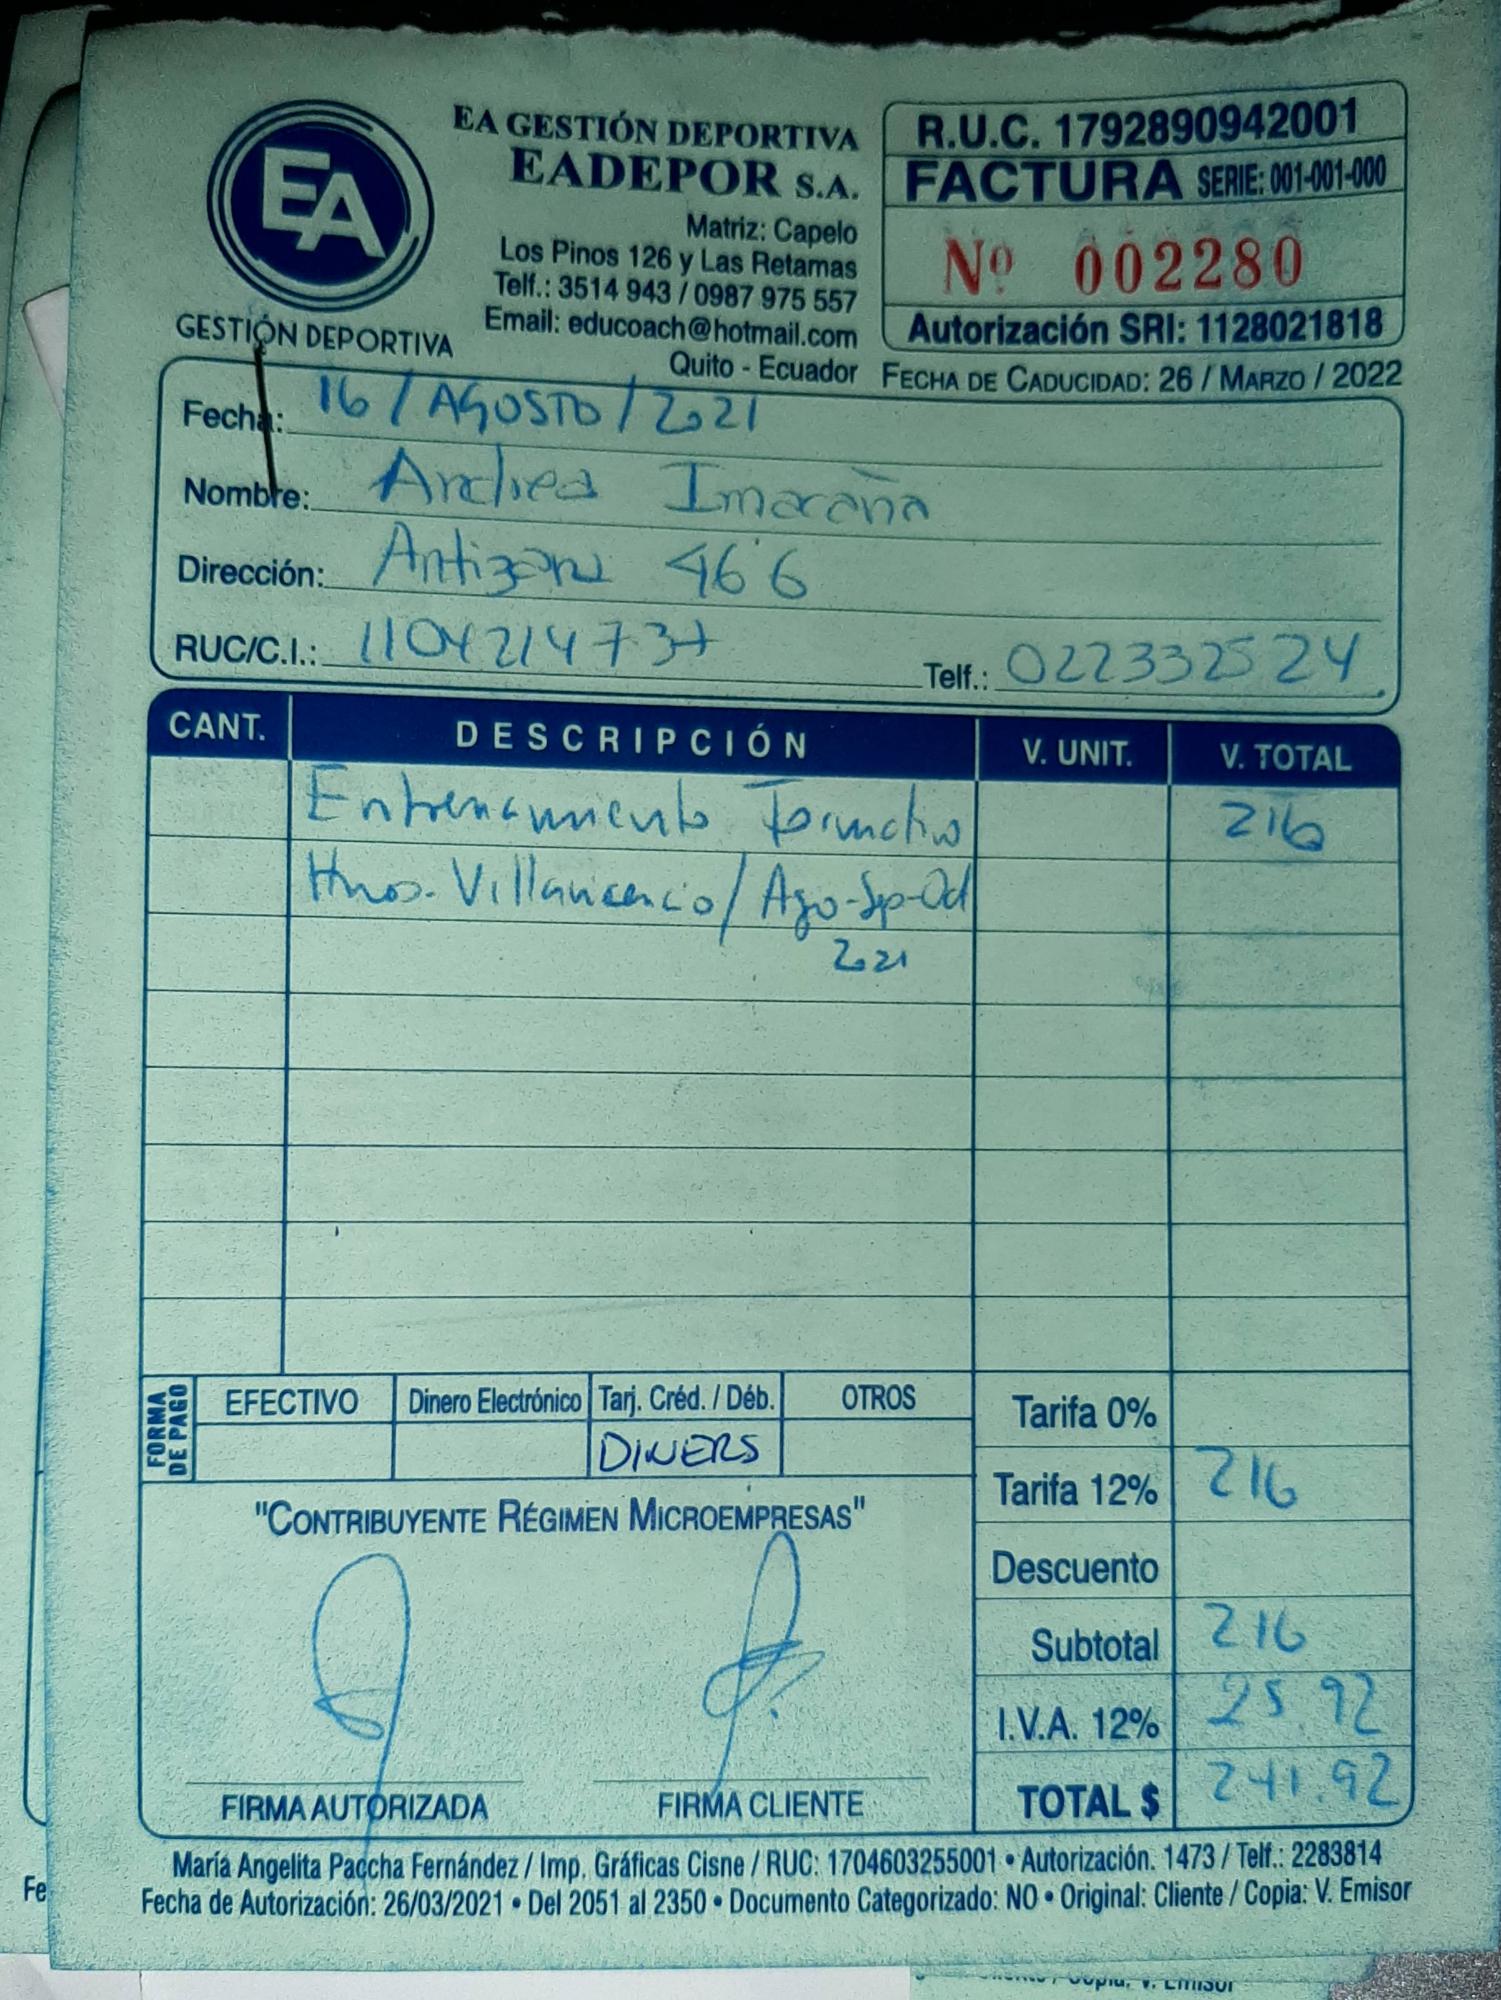 EA
GESTIÓN DEPORTIVA
EA GESTIÓN DEPORTIVA
EADEPOR S.A.
Matriz: Capelo
Los Pinos 126 y Las Retamas
Telf.: 3514 943 / 0987 975 557
Email: educoach@hotmail.com
Quito - Ecuador
R.U.C. 1792890942001
FACTURA SERIE: 001-001-000
Nº 002280
Autorización SRI: 1128021818
FECHA DE CADUCIDAD: 26 / MARZO / 2022
Fecha: 16 / AGOSTO / 2021
Nombre: Andrea Imaraña
Dirección: 466
RUC/C.I.: 1104214737 Telf.: 022332524
CANT. DESCRIPCIÓN V. UNIT. V. TOTAL
Entrenamiento Formativo 216
Hnos. Villavicencio / Ago-Sp-Oct
2021
FORMA DE PAGO EFECTIVO Dinero Electrónico Tarj. Créd. / Déb. OTROS
DINERS
Tarifa 0%
Tarifa 12% 216
Descuento
Subtotal 216
I.V.A. 12% 25.92
TOTAL $ 241.92
"CONTRIBUYENTE RÉGIMEN MICROEMPRESAS"
FIRMA AUTORIZADA FIRMA CLIENTE
María Angelita Paccha Fernández / Imp. Gráficas Cisne / RUC: 1704603255001 • Autorización. 1473 / Telf.: 2283814
Fecha de Autorización: 26/03/2021 • Del 2051 al 2350 • Documento Categorizado: NO • Original: Cliente / Copia: V. Emisor
Fe
Copia: V. Emisor